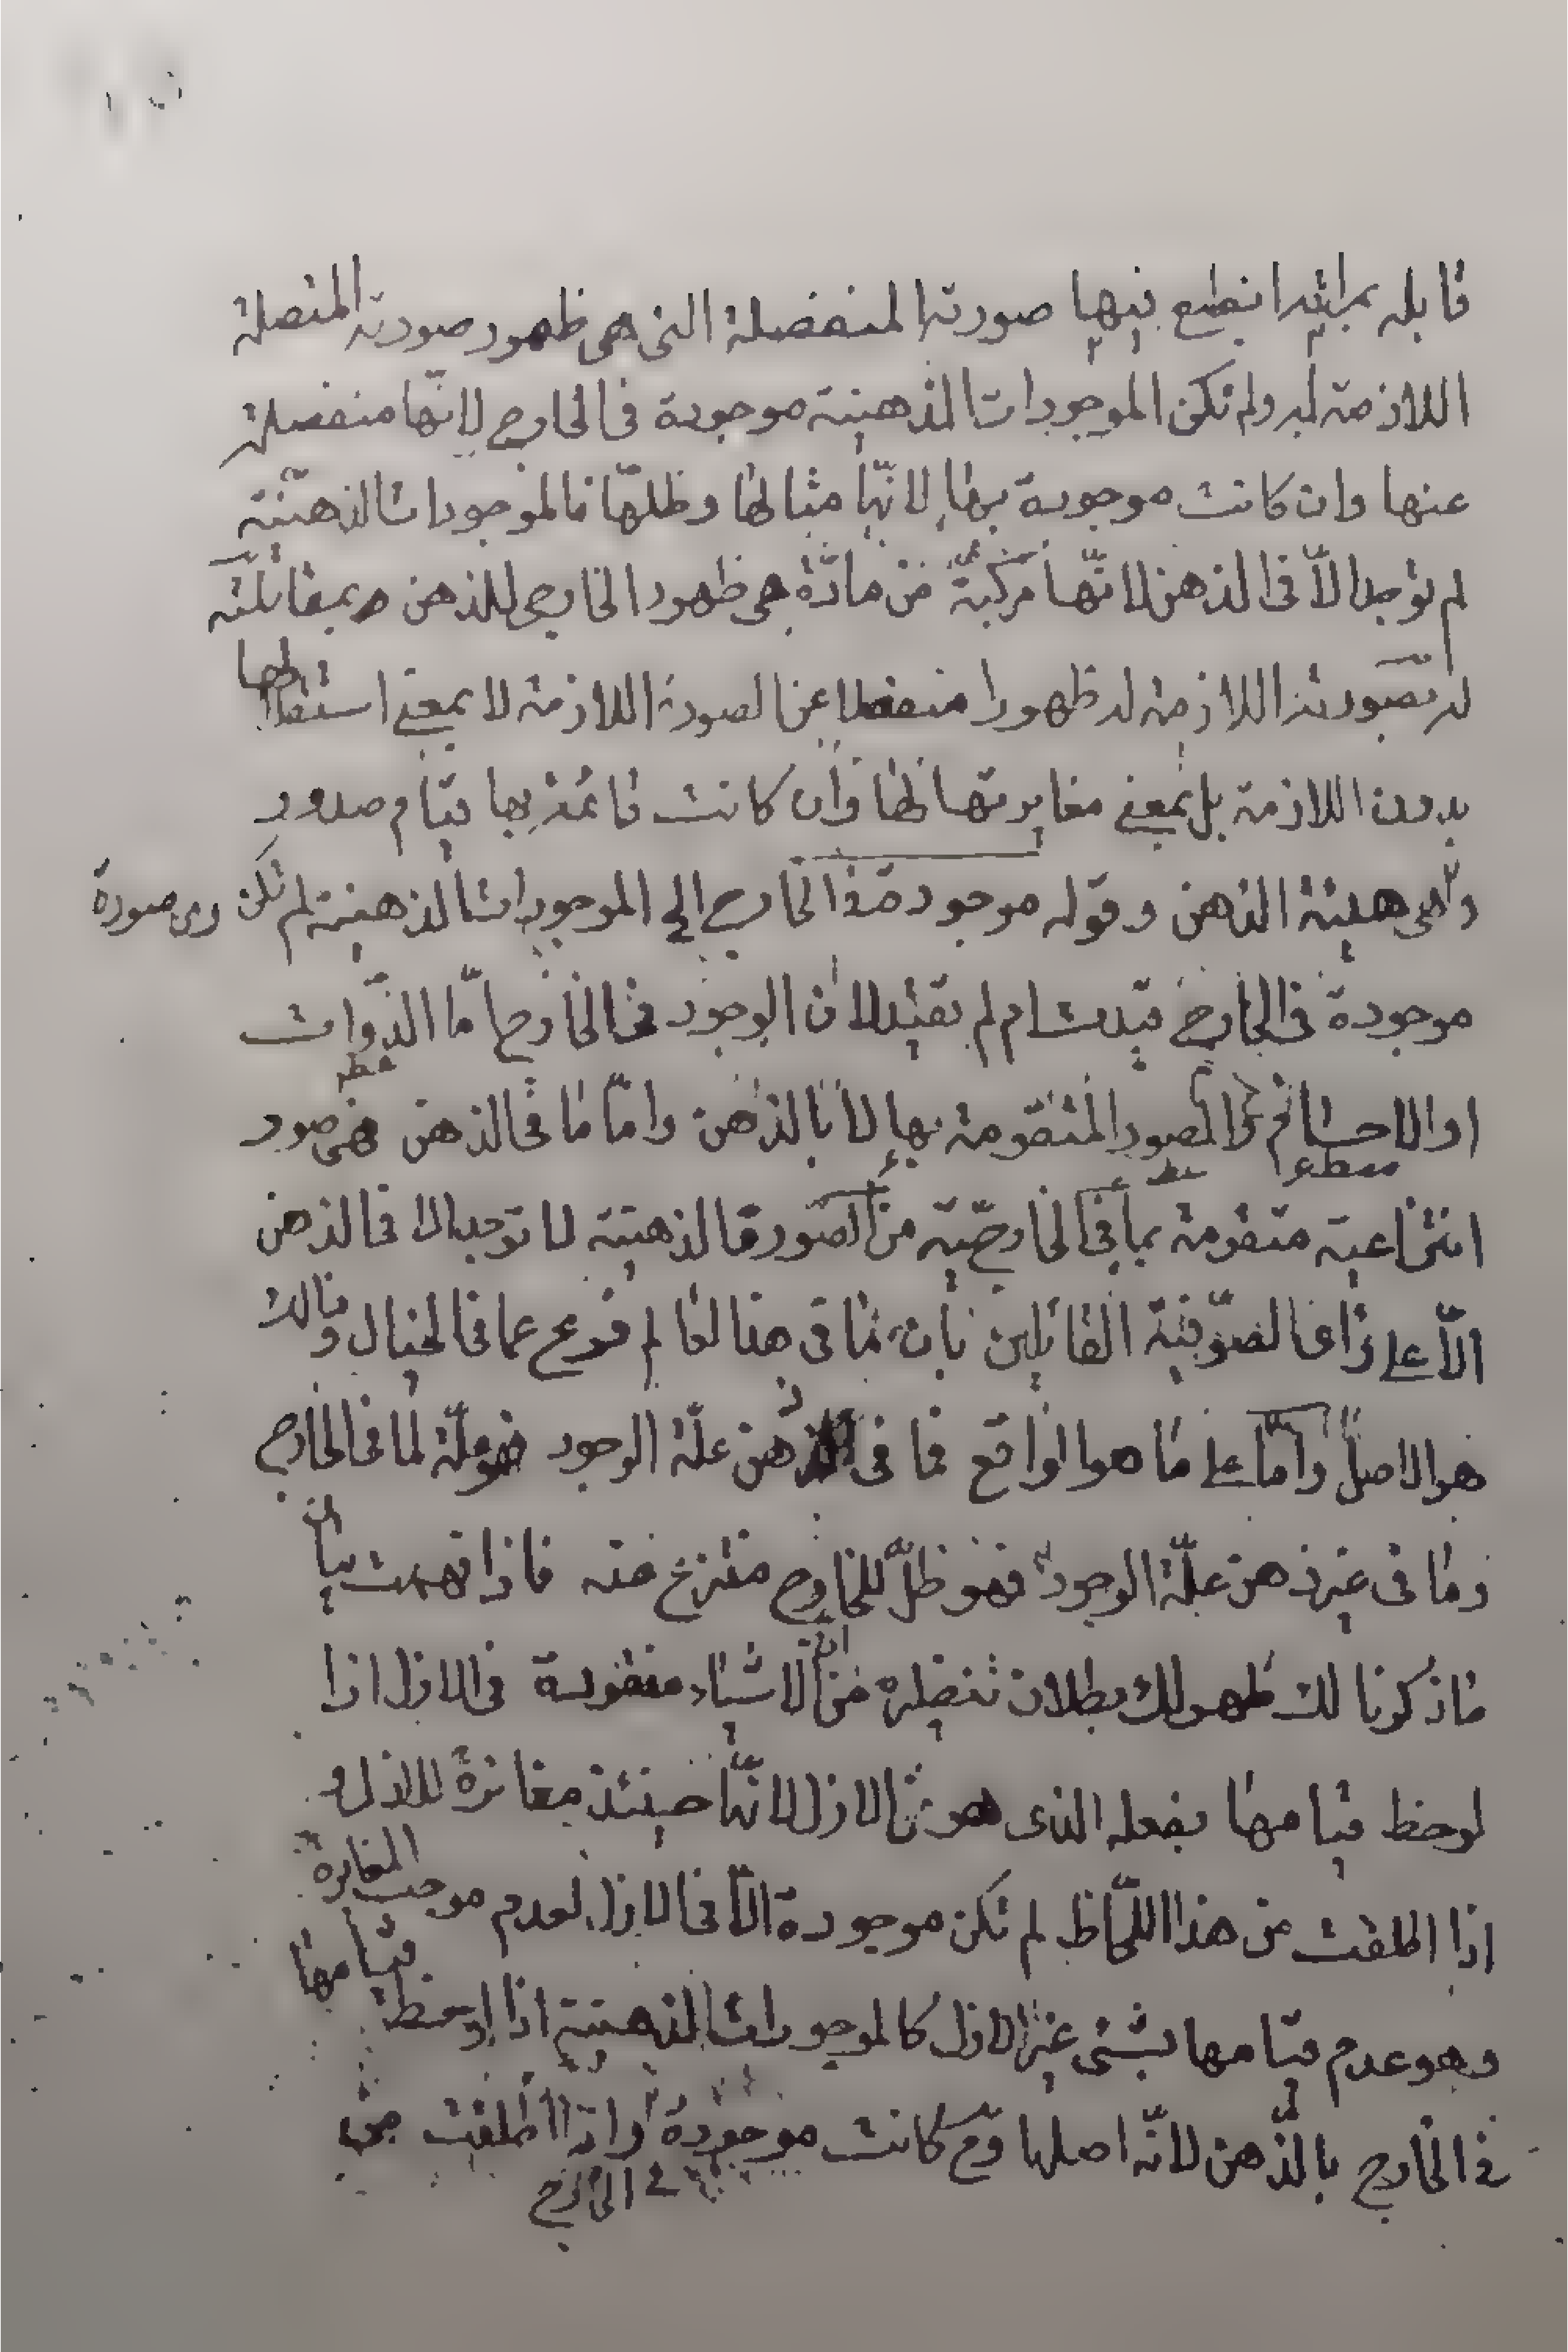 قابله بمراته انطبع فيها صورته المنفصلة التى هى ظهور صورته المتصلة
اللازمة له ولم تكن الموجودات الذهنية موجودة فى الخارج لانّها منفصلة
عنها وان كانت موجودة بها لانّها مثالها وظلّها فالموجودات الذهنيّة
لم توجد الاّ فى الذهن لانّها مركبة من مادّة هى ظهور الخارجى للذهن و بمقابلته
له بصورته اللازمة له ظهورا منفصلا عن الصورة اللازمة لا بمعنى استقلالها
بدون اللازمة بل بمعنى مغايرتها لها وان كانت قائمة بها قيام صدور
هى هيئة الذهن وقوله موجودة فى الخارج الى الموجودات الذهنية لم تكن صورة
موجودة فى الخارج قيدت ام لم يقيد لان الوجود فى الخارج امّا الذّوات
او الاجسام والصور المتقومة بها لا بالذهن وامّا ما فى الذهن فهى صور
انتزاعية متقومة بما فى الخارجيّة من الصور فالذهنيّة لا توجد الا فى الذهن
الاّ على راى الصّوفيّة القائلين بان ما فى هذا العالم فرع عما فى الخيال
هو الاصل وامّا على ما هو الواقع فما فى الذهن علّة الوجود فهو علّة لما فى الخارج
وما فى غير ذهن علّة الوجود فهو ظلّ للخارج منتزع منه فاذا فهمت بيان
ما ذكرنا لك ظهر لك بطلان تنضيره من انّ الاشياء مفقودة فى الازل اذا
لوحظ قيامها بفعله الذى هو الازل لانّها حينئذ مغايرة للازل و
اذا اطلقت من هذا اللّحاظ لم تكن موجودة الاّ فى الازل لعدم موجب المغايرة
وهو عدم قيامها بشئ غير الازل كالموجودات الذهنيّة اذا لوحظ قيامها
فى الخارج بالذّهن لانّه اصلها وهى كانت موجودة واذا اطلقت من
فى الخارج